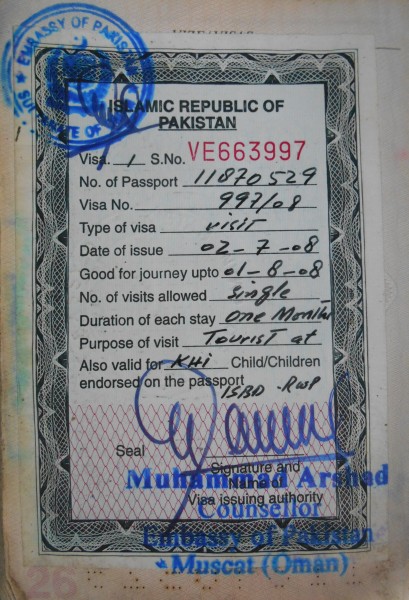 EMBASSY OF PAKISTAN
ISLAMIC REPUBLIC OF
PAKISTAN
Visa. 1 S.No. VE663997
No. of Passport 11870529
Visa No. 997/08
Type of visa visit
Date of issue 02-7-08
Good for journey upto 01-8-08
No. of visits allowed single
Duration of each stay One Month
Purpose of visit Tourist at
Also valid for KHI Child/Children
endorsed on the passport ISBD - RWP
Seal
Signature and
Name of
Visa issuing authority
Muhammad Arshad
Counsellor
Embassy of Pakistan
Muscat (Oman)
26